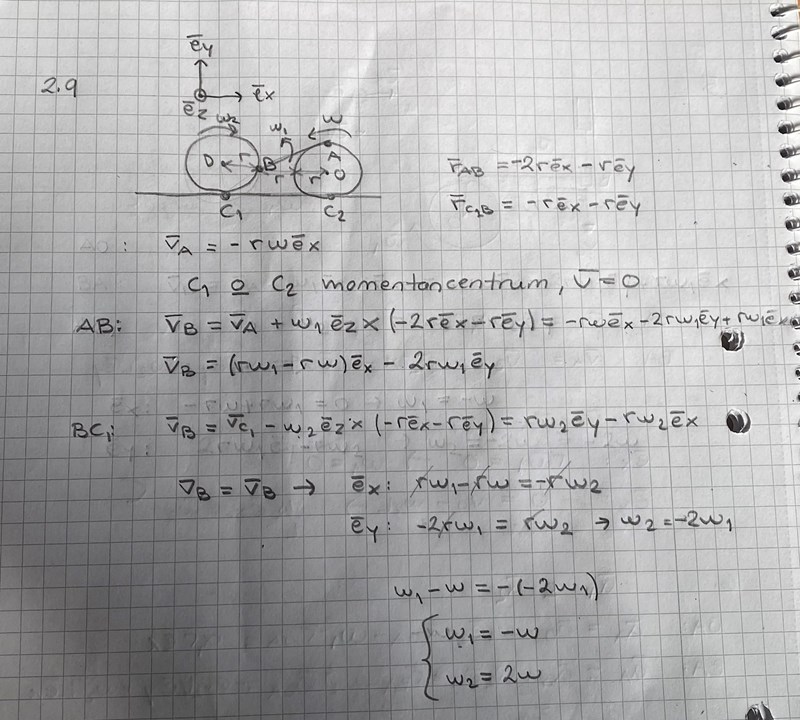 2.9
ēy
ēx
ēz
ω₂ ω₁ ω
D r B r r A O
C₁ C₂
r̄AB = -2rēx - rēy
r̄C₂B = -rēx - rēy
: v̄A = -rωēx
C₁ o C₂ momentancentrum, v̄=0
AB: v̄B = v̄A + ω₁ēz × (-2rēx-rēy) = -rωēx-2rω₁ēy+rω₁ēx
v̄B = (rω₁-rω)ēx - 2rω₁ēy
BC₁: v̄B = v̄C₁ - ω₂ēz × (-rēx-rēy) = rω₂ēy-rω₂ēx
v̄B = v̄B → ēx: rω₁-rω = -rω₂
ēy: -2rω₁ = rω₂ → ω₂ = -2ω₁
ω₁-ω = -(-2ω₁)
{ ω₁ = -ω
ω₂ = 2ω